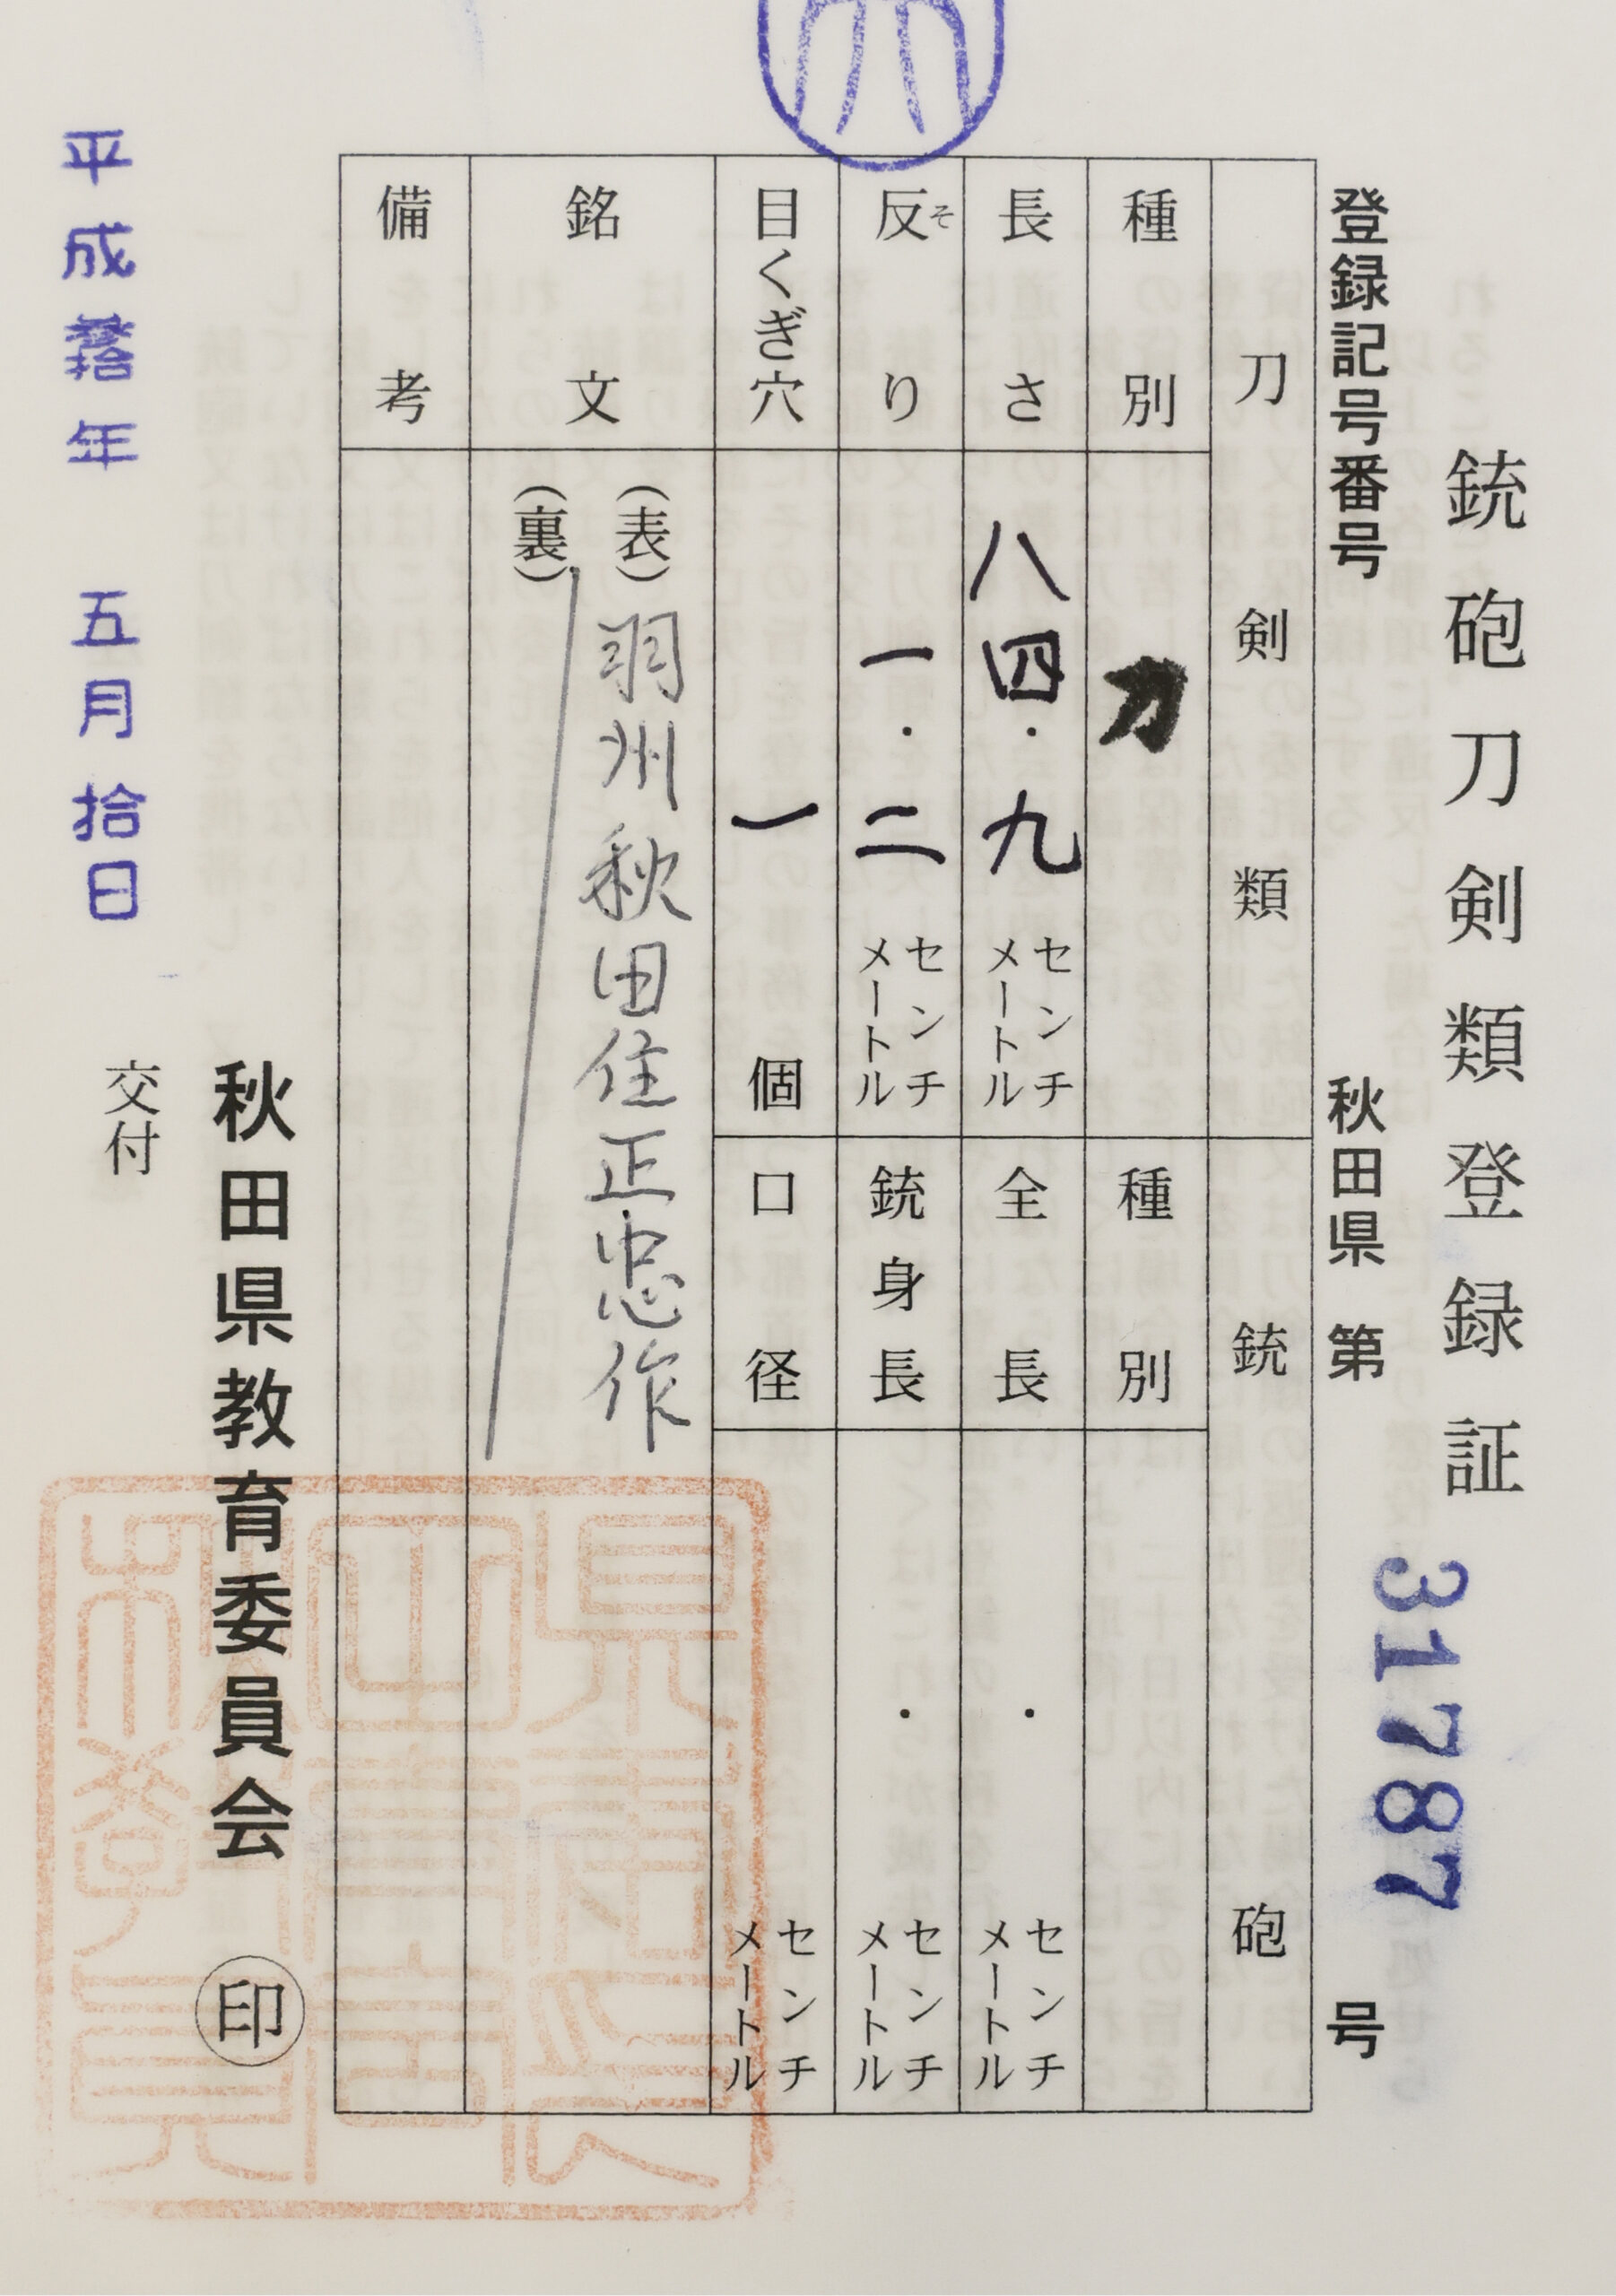 銃砲刀剣類登録証
登録記号番号 秋田県 第 31787 号
刀剣類 銃砲
種別 刀 種別
長さ 八四・九 センチメートル 全長 ・ センチメートル
反り そ 一・二 センチメートル 銃身長 ・ センチメートル
目くぎ穴 一 個 口径 センチメートル
銘文 (表) 羽州秋田住正忠作
(裏)
備考
秋田県教育委員会 印
平成 年 五月拾日 交付